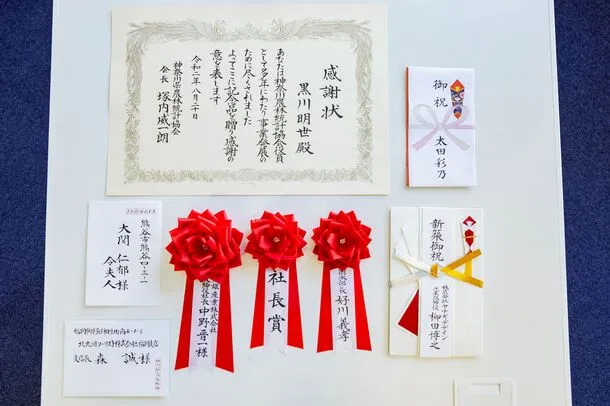 感謝状
黒川明世殿
あなたは神奈川農林統計協会役員
として多年にわたり事業発展の
ために尽くされました
よってここに記念品を贈り感謝の
意を表します
令和二年八月二十日
神奈川県農林統計協会
会長 塚内威一朗
御祝
太田彩乃
熊谷市熊谷四-三-一
大関 仁郁様
令夫人
雄産業株式会社
締役社長 中野晋一様
社長賞
部長 好川義孝
新築御祝
株式会社ヤナギデザイン
代表取締役 柳田博之
支店長 森 誠様